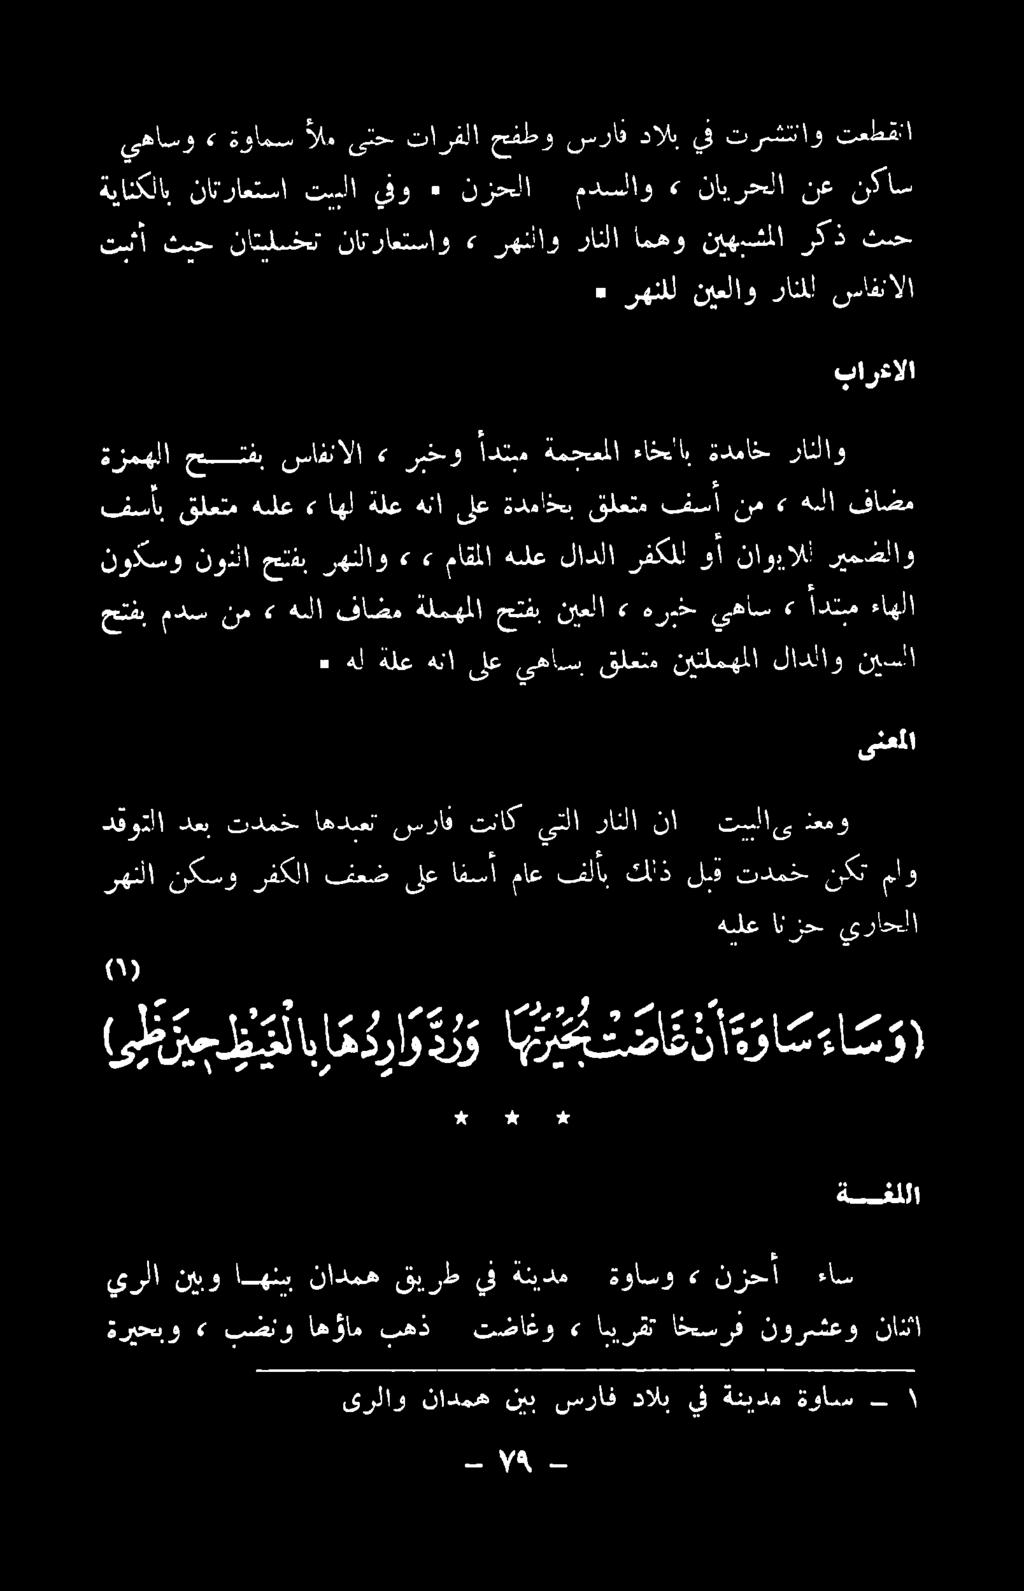 انقطعت وانتشرت في بلاد فارس وطفح الفرات حتى ملأ سماوة ، وساهي
ساكن عن الجريان ، والسدم الحزن ▪ وفي البيت استعارتان بالكناية
حيث ذكر المشبهين وهما النار والنهر ، واستعارتان تخييليتان حيث أثبت
الانفاس للنار والعين للنهر ▪
الاعراب
والنار خامدة بالخاء المعجمة مبتدأ وخبر ، الانفاس بفتـــح الهمزة
مضاف اليه ، من أسف متعلق بخامدة على انه علة لها ، عليه متعلق بأسف
والضمير للايوان أو للكفر الدال عليه المقام ، ، والنهر بفتح النون وسكون
الهاء مبتدأ ، ساهي خبره ، العين بفتح المهملة مضاف اليه ، من سدم بفتح
السين والدال المهملتين متعلق بساهي على انه علة له ▪
المعنى
ومعنى البيت ان النار التي كانت فارس تعبدها خمدت بعد التوقد
ولم تكن خمدت قبل ذلك بألف عام أسفا على ضعف الكفر وسكن النهر
الجاري حزنا عليه
(١)
(وَسَاءَ سَاوَةَ أَنْ غَاضَتْ بُحَيْرَتُهَا وَرُدَّ وَارِدُهَا بِالْغَيْظِ حِينَ ظَمِي)
★ ★ ★
اللغـــة
ساء أحزن ، وساوة مدينة في طريق همدان بينهـا وبين الري
اثنان وعشرون فرسخا تقريبا ، وغاضت ذهب ماؤها ونضب ، وبحيرة
١ – ساوة مدينة في بلاد فارس بين همدان والرى
– ٧٩ –